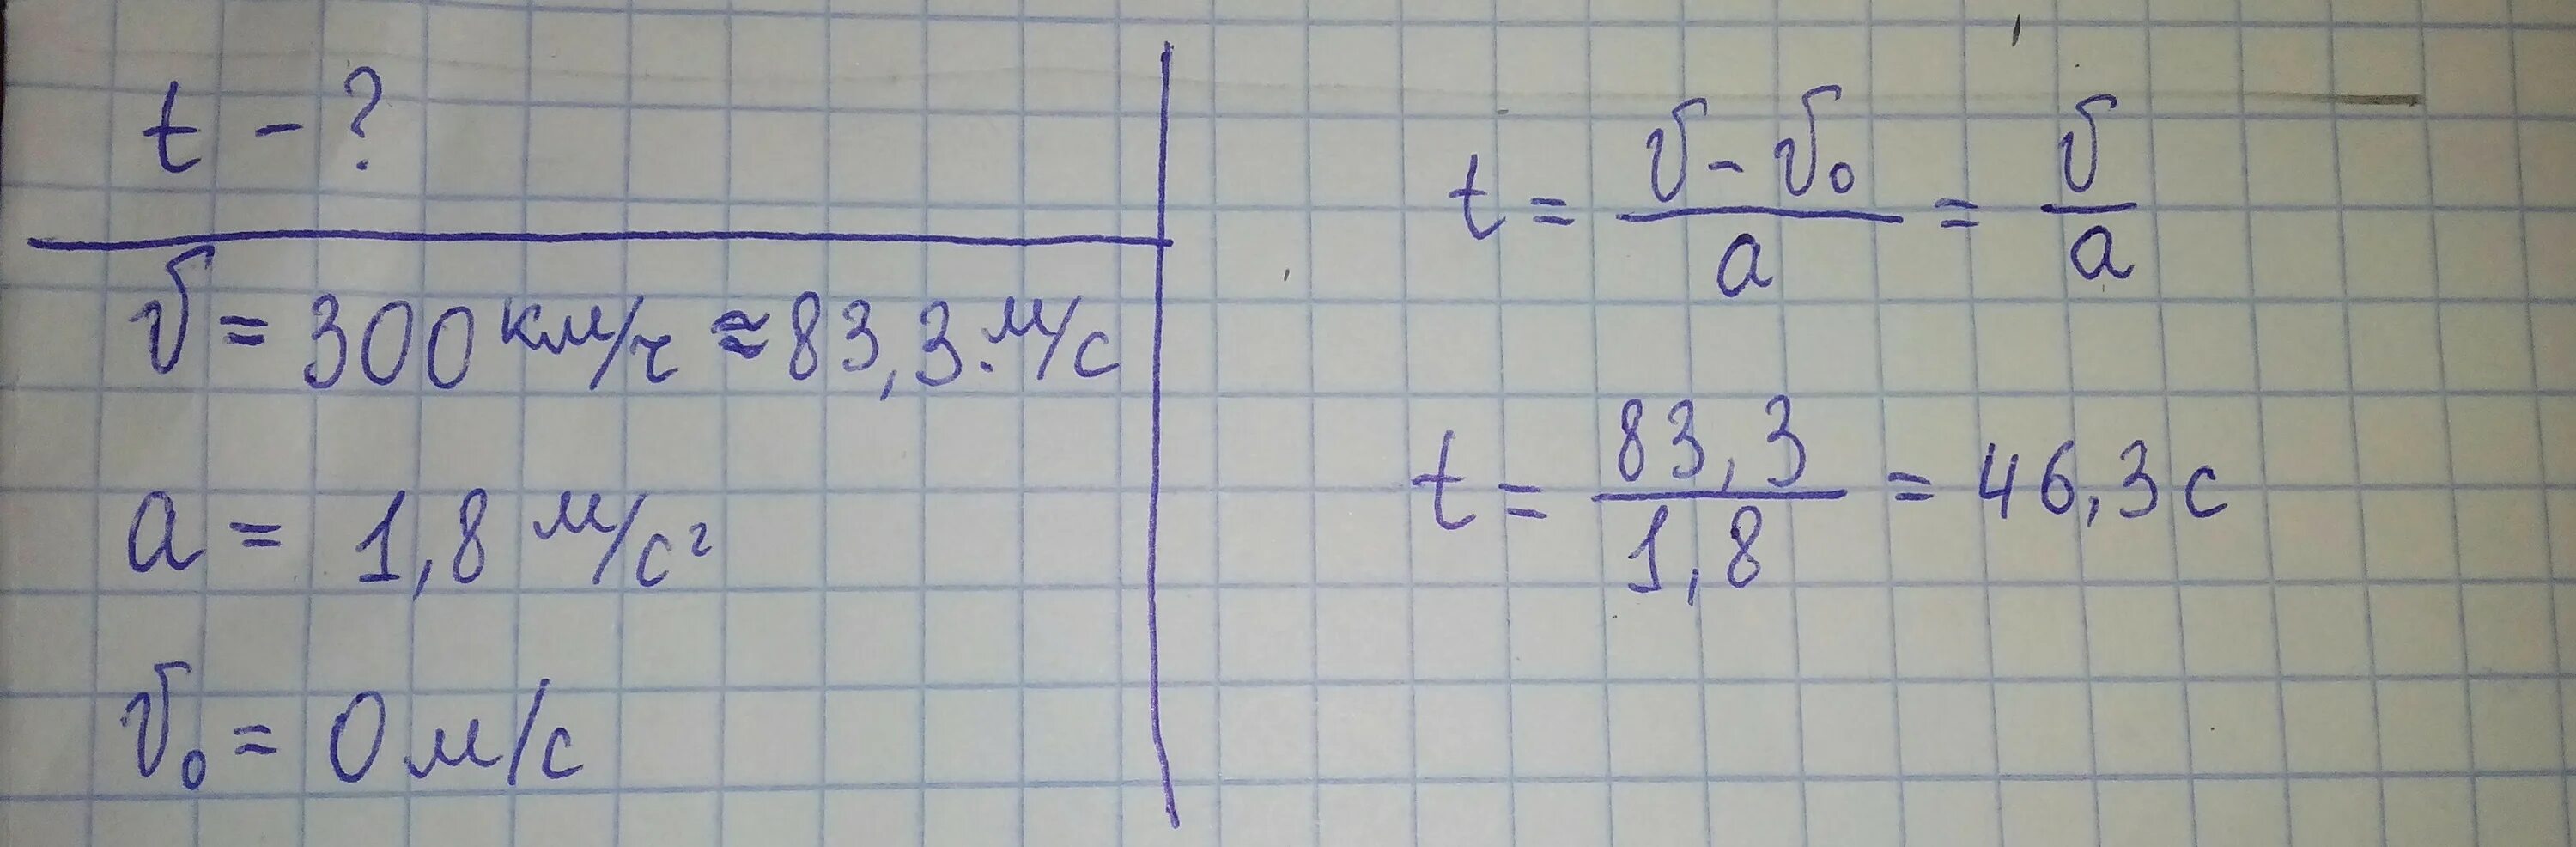 t - ?
v = 300 км/ч ≈ 83,3 м/с
a = 1,8 м/с²
v₀ = 0 м/с
t = (v - v₀)/a = v/a
t = 83,3/1,8 = 46,3 с